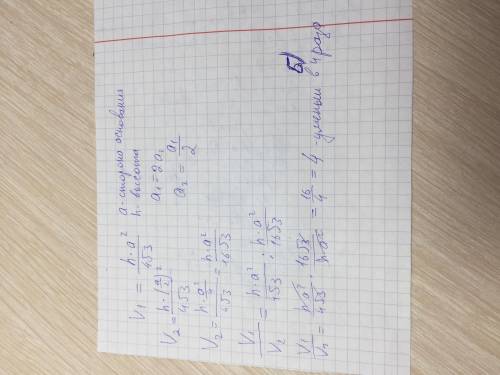 V₁ = h·a² / 4√3 a - сторона основания
h - высота
V₂ = h·(a/2)² / 4√3 a₁ = 2a₁
a₂ = a₁/2
V₂ = h·a²/4 / 4√3 = h·a² / 16√3
V₁/V₂ = h·a² / 4√3 : h·a² / 16√3
V₁/V₁ = h·a² / 4√3 · 16√3 / h·a² = 16/4 = 4 - уменьш в 4 раза
Б)